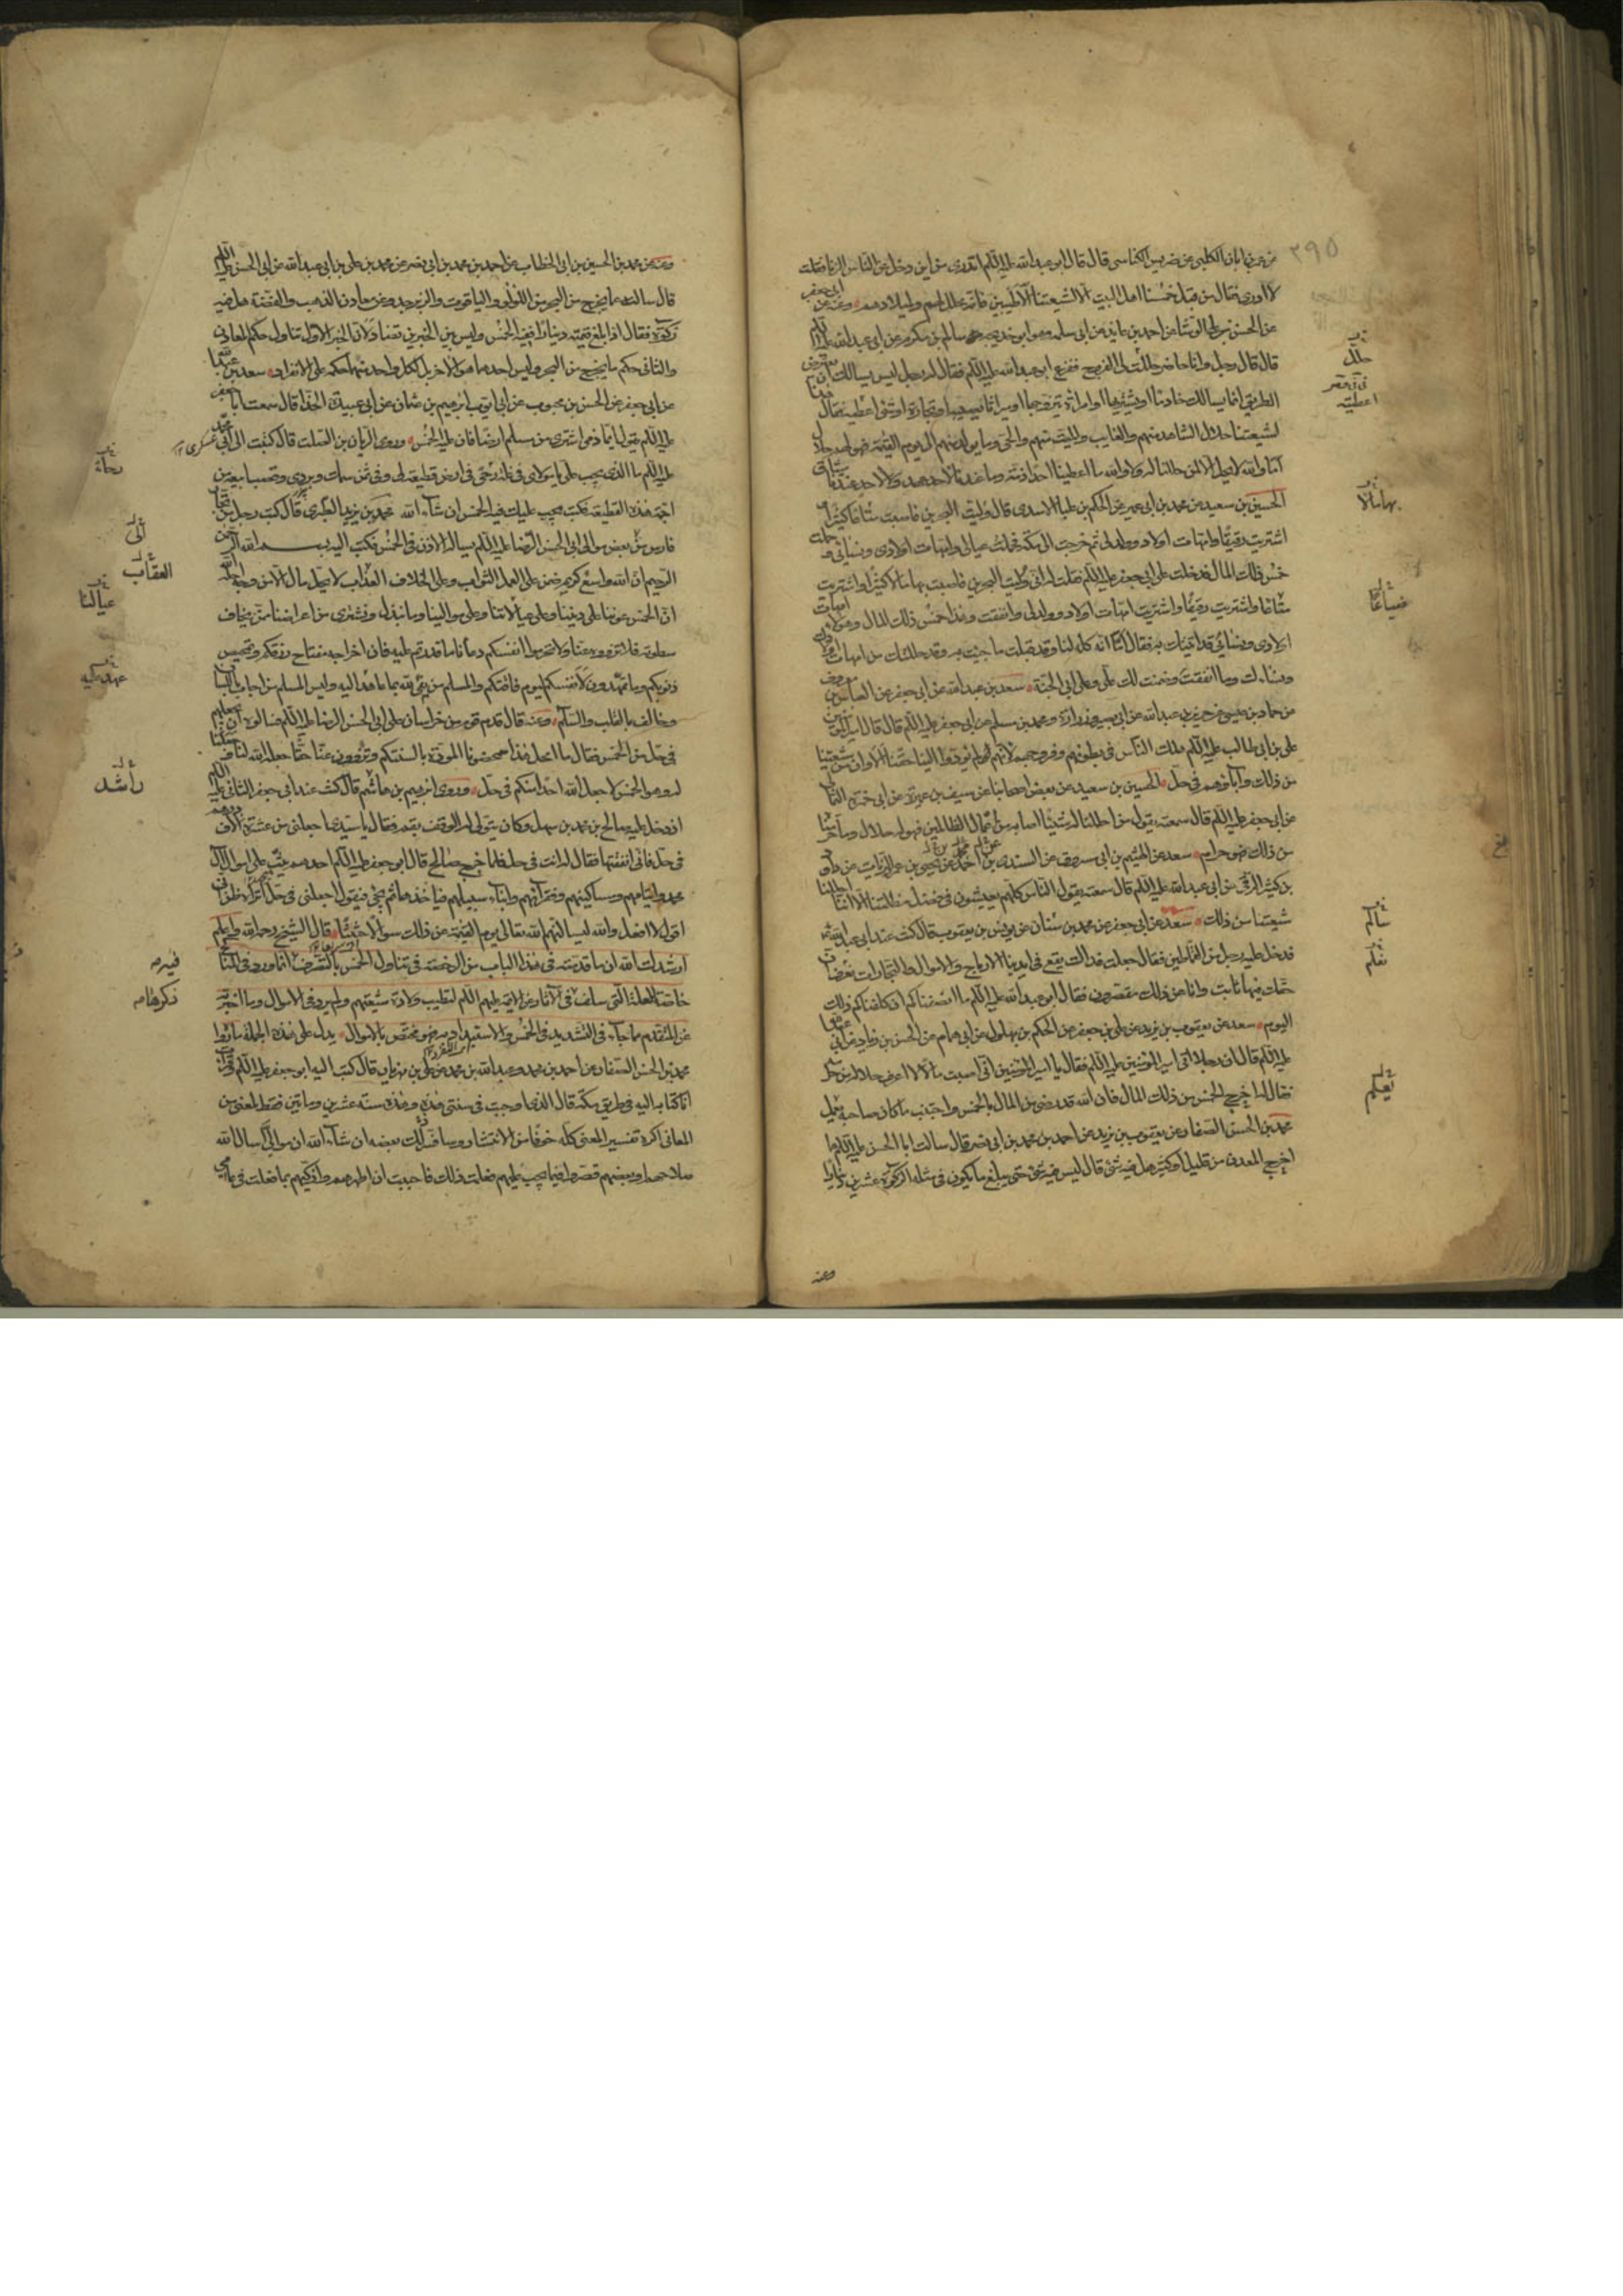 ٢٩٥
ضريس الكناسى قال قال ابو عبد الله عليه السلم اتدرى من اين دخل على الناس الزنا فقلت
لا ادرى فقال من قبل خمسنا اهل البيت الا لشيعتنا الاطيبين فانه محلل لهم ولميلادهم وعنه عن ابى جعفر
عن الحسن بن على الوشا عن احمد بن عايذ عن ابى سلمه وهو ابو خديجه سالم بن مكرم عن ابى عبد الله عليه السلم
قال قال رجل وانا حاضر حلل لى الفروج ففزع ابو عبد الله عليه السلم فقال له رجل ليس يسالك ان يعترض
الطريق انما يسالك خادما يشتريها او امراة يتزوجها او ميراثا يصيبه او تجارة او شئ اعطيه فقال هذا
لشيعتنا حلال الشاهد منهم والغايب والميت منهم والحى وما يولد منهم الى يوم القيمة فهو لهم حلال
اما والله لا يحل الا لمن حللنا له ولا والله ما اعطينا احدا ذمة وما عندنا لاحد عهد ولا لاحد عندنا ميثاق
الحسين بن سعيد عن محمد بن ابى عمير عن الحكم بن علبا الاسدى قال وليت البحرين فاصبت مالا كثيرا
اشتريت رقيقا وامهات اولاد وولد لى ثم خرجت الى مكة فحملت عيالى وامهات اولادى ونسائى وحملت
خمس ذلك المال فدخلت على ابى جعفر عليه السلم فقلت له انى وليت البحرين فاصبت بها مالا كثيرا واشتريت
متاعا واشتريت رقيقا واشتريت امهات اولاد وولد لى وانفقت وهذا خمس ذلك المال وهؤلاء امهات
اولادى ونسائى قد اتيتك به فقال اما انه كله لنا وقد قبلت ما جئت به وقد حللتك من امهات اولادك
ونسائك وما انفقت وضمنت لك على وعلى ابى الجنة سعد بن عبد الله عن ابى جعفر عن العباس بن معروف
عن حماد بن عيسى عن حريز بن عبد الله عن ابى بصير وزرارة ومحمد بن مسلم عن ابى جعفر عليه السلم قال قال امير المؤمنين
على بن ابى طالب عليه السلم هلك الناس فى بطونهم وفروجهم لانهم لم يؤدوا الينا حقنا الا وان شيعتنا
من ذلك وآباؤهم فى حل الحسين بن سعيد عن بعض اصحابنا عن سيف بن عميرة عن ابى حمزة الثمالى
عن ابى جعفر عليه السلم قال سمعته يقول من احللنا له شيئا اصابه من اعمال الظالمين فهو له حلال وما حرمنا
من ذلك فهو حرام سعد عن الهيثم بن ابى مسروق عن السندى بن احمد عن يحيى بن عمر الزيات عن داود
بن كثير الرقى عن ابى عبد الله عليه السلم قال سمعته يقول الناس كلهم يعيشون فى فضل مظلمتنا الا انا احللنا
شيعتنا من ذلك سعد عن ابى جعفر عن محمد بن سنان عن يونس بن يعقوب قال كنت عند ابى عبد الله
فدخل عليه رجل من القماطين فقال جعلت فداك يقع فى ايدينا الارباح والاموال والتجارات نعرف ان
حقك فيها ثابت وانا عن ذلك مقصرون فقال ابو عبد الله عليه السلم ما انصفناكم ان كلفناكم ذلك
اليوم سعد عن يعقوب بن يزيد عن على بن جعفر عن الحكم بن بهلول عن ابى همام عن الحسن بن زياد عن ابى عبد الله
عليه السلم قال ان رجلا اتى امير المؤمنين عليه السلم فقال يا امير المؤمنين انى اصبت مالا لا اعرف حلاله من حرامه
فقال له اخرج الخمس من ذلك المال فان الله قد رضى من المال بالخمس واجتنب ما كان صاحبه يعمل
محمد بن الحسن الصفار عن يعقوب بن يزيد عن احمد بن محمد بن ابى نصر قال سالت ابا الحسن عليه السلم عما
اخرج المعدن من قليل او كثير هل فيه شئ قال ليس فيه شئ حتى يبلغ ما يكون فى مثله الزكوة عشرين دينارا
وعنه
حلل
اعطيته
بها مالا
ضياعا
سالم
نعلم
يعلم
وعنه عن محمد بن الحسين بن ابى الخطاب عن احمد بن محمد بن ابى نصر عن محمد بن على بن ابى عبد الله عن ابى الحسن عليه السلم
قال سالته عما يخرج من البحر من اللؤلؤ والياقوت والزبرجد وعن معادن الذهب والفضة هل فيه
زكوة فقال اذا بلغ قيمته دينارا ففيه الخمس وليس بين الخبرين تضاد لان الخبر الاول تناول حكم المعادن
والثانى حكم ما يخرج من البحر وليس احدهما هو الاخر بل لكل واحد منهما حكم على الانفراد سعد بن عبد الله
عن ابى جعفر عن الحسن بن محبوب عن ابى ايوب ابرهيم بن عثمان عن ابى عبيدة الحذا قال سمعت ابا جعفر
عليه السلم يقول ايما ذمى اشترى من مسلم ارضا فان عليه الخمس وروى الريان بن الصلت قال كتبت الى ابى محمد عسكرى
عليه السلم ما الذى يجب على يا مولاى فى غلة رحى فى ارض قطيعة لى وفى ثمن سمك وبردى وقصب ابيعه من
اجمة هذه القطيعة فكتب يجب عليك فيه الخمس ان شاء الله محمد بن يزيد الطبرى قال كتب رجل من تجار
فارس من بعض موالى ابى الحسن الرضا عليه السلم يساله الاذن فى الخمس فكتب اليه بسم الله الرحمن
الرحيم ان الله واسع كريم ضمن على العمل الثواب وعلى الخلاف العذاب لا يحل مال الا من وجه احله الله
ان الخمس عوننا على ديننا وعلى عيالاتنا وعلى موالينا وما نبذل ونشترى من اعراضنا ممن نخاف
سطوته فلا تزووه عنا ولا تحرموا انفسكم دعانا ما قدرتم عليه فان اخراجه مفتاح رزقكم وتمحيص
ذنوبكم وما تمهدون لانفسكم ليوم فاقتكم والمسلم من يفى لله بما عهد اليه وليس المسلم من اجاب باللسان
وخالف بالقلب والسلام وعنه قال قدم قوم من خراسان على ابى الحسن الرضا عليه السلم فسالوه ان يجعلهم
فى حل من الخمس فقال ما امحل هذا تمحضونا المودة بالسنتكم وتزوون عنا حقا جعله الله لنا وجعلنا
له وهو الخمس لا جعل الله احدا منكم فى حل وروى ابرهيم بن هاشم قال كنت عند ابى جعفر الثانى عليه السلم
اذ دخل عليه صالح بن محمد بن سهل وكان يتولى له الوقف بقم فقال يا سيدى اجعلنى من عشرة الاف درهم
فى حل فانى انفقتها فقال له انت فى حل فلما خرج صالح قال ابو جعفر عليه السلم احدهم يثب على اموال آل
محمد وايتامهم ومساكينهم وفقرائهم وابناء سبيلهم فياخذها ثم يجئ فيقول اجعلنى فى حل اتراه ظن انى
اقول لا افعل والله ليسالنهم الله تعالى يوم القيمة عن ذلك سؤالا حثيثا قال الشيخ رحمه الله واعلم
ارشدك الله ان ما قدمته فى هذا الباب من الرخصة فى تناول الخمس بالتصرف انما ورد فى المناكح
خاصة للعلة التى سلف فى الاثار عن الائمة عليهم السلم لتطيب ولادة شيعتهم ولم يرد فى الاموال وما اخرته
عن المتقدم مما جاء فى التشديد فى الخمس والاستبداد به فهو مختص بالاموال يدل على هذه الجملة ما رواه
محمد بن الحسن الصفار عن احمد بن محمد وعبد الله بن محمد عن على بن مهزيار قال كتب اليه ابو جعفر عليه السلم وقرات
انا كتابه اليه فى طريق مكة قال الذى اوجبت فى سنتى هذه وهذه سنة عشرين وماتين فقط لمعنى من
المعانى اكره تفسير المعنى كله خوفا من الانتشار وسافسر لك بعضه ان شاء الله ان موالى اسال الله
صلاحهم او بعضهم قصروا فيما يجب عليهم فعلمت ذلك فاحببت ان اطهرهم وازكيهم بما فعلت فى عامى
رحاة
الى
العقاب
عيالنا
عهد اليه
راشد
ذكرهامه